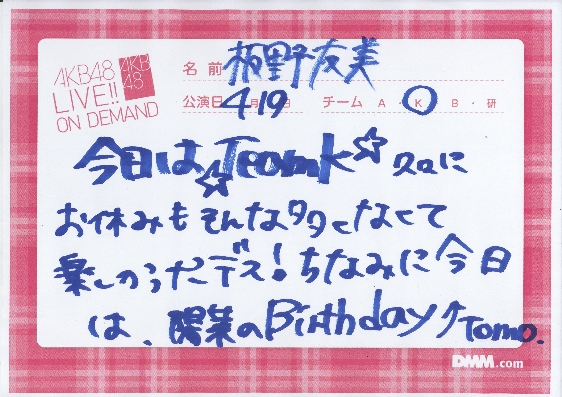 AKB48
LIVE!!
ON DEMAND
AKB
48
名前 板野友美
公演日 4月19日 チーム A・K・B・研
今日は☆TeamK☆久々に
お休みもそんな多くなくて
楽しかったデス!ちなみに今日
は、陽菜のBirthday↑Tomo.
DMM.com